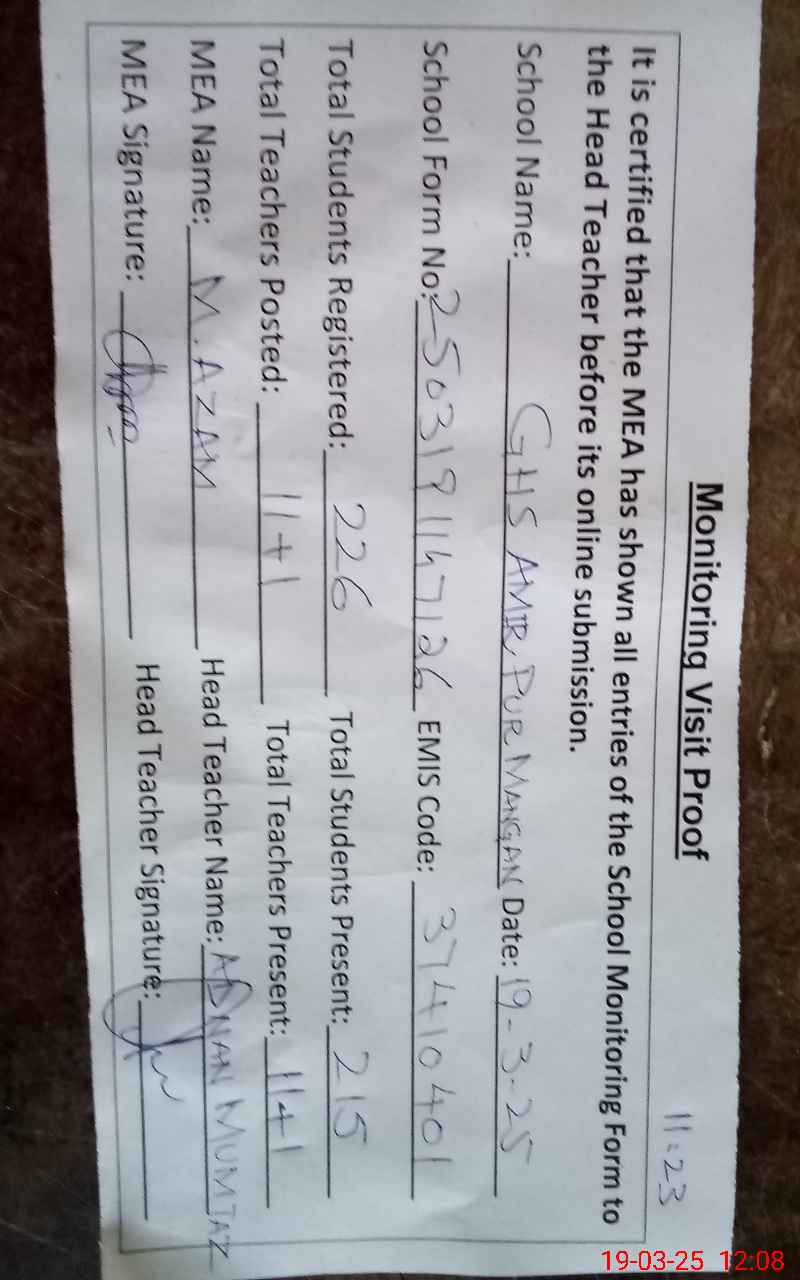 Monitoring Visit Proof
11:23
It is certified that the MEA has shown all entries of the School Monitoring Form to
the Head Teacher before its online submission.
School Name: GHS AMIR PUR MANGAN Date: 19-3-25
School Form No: 2503191147126 EMIS Code: 37410401
Total Students Registered: 226 Total Students Present: 215
Total Teachers Posted: 11+1 Total Teachers Present: 11+1
MEA Name: M. AZAM Head Teacher Name: ADNAN MUMTAZ
MEA Signature: Head Teacher Signature:
19-03-25 12:08